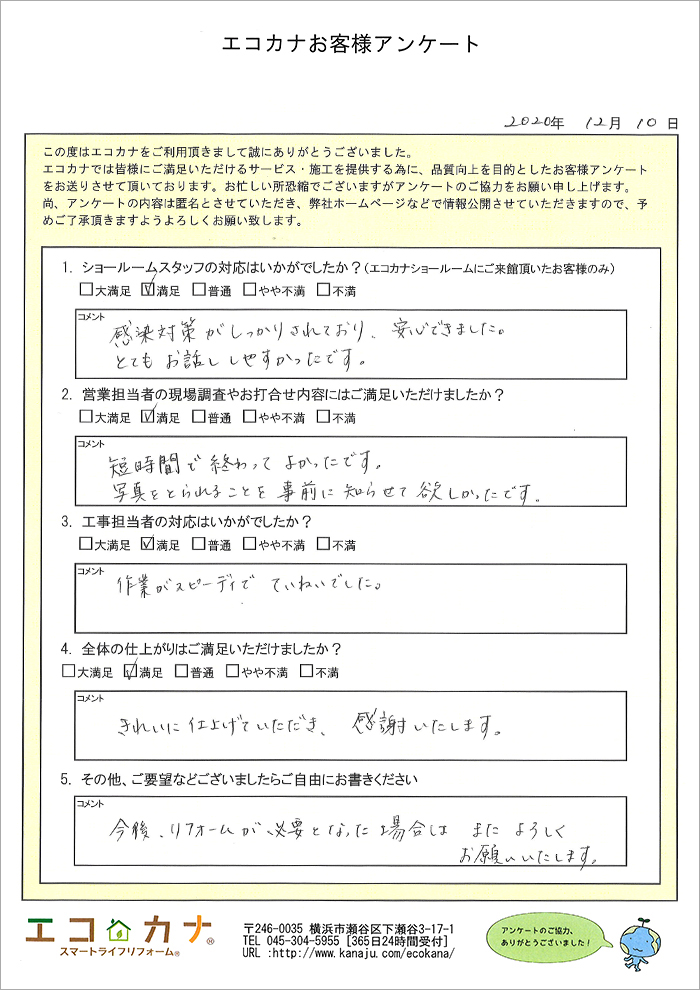 エコカナお客様アンケート
2020年 12月 10日
この度はエコカナをご利用頂きまして誠にありがとうございました。
エコカナでは皆様にご満足いただけるサービス・施工を提供する為に、品質向上を目的としたお客様アンケート
をお送りさせて頂いております。お忙しい所恐縮でございますがアンケートのご協力をお願い申し上げます。
尚、アンケートの内容は匿名とさせていただき、弊社ホームページなどで情報公開させていただきますので、予
めご了承頂きますようよろしくお願い致します。
1. ショールームスタッフの対応はいかがでしたか？(エコカナショールームにご来館頂いたお客様のみ)
□大満足 ☑満足 □普通 □やや不満 □不満
コメント
感染対策がしっかりされており、安心できました。
とてもお話ししやすかったです。
2. 営業担当者の現場調査やお打合せ内容にはご満足いただけましたか？
□大満足 ☑満足 □普通 □やや不満 □不満
コメント
短時間で終わってよかったです。
写真をとられることを事前に知らせて欲しかったです。
3. 工事担当者の対応はいかがでしたか？
□大満足 ☑満足 □普通 □やや不満 □不満
コメント
作業がスピーディでていねいでした。
4. 全体の仕上がりはご満足いただけましたか？
□大満足 ☑満足 □普通 □やや不満 □不満
コメント
きれいに仕上げていただき、感謝いたします。
5. その他、ご要望などございましたらご自由にお書きください
コメント
今後、リフォームが必要となった場合は またよろしく
お願いいたします。
エコカナ®
スマートライフリフォーム®
〒246-0035 横浜市瀬谷区下瀬谷3-17-1
TEL 045-304-5955 [365日24時間受付]
URL :http://www.kanaju.com/ecokana/
アンケートのご協力、
ありがとうございました！